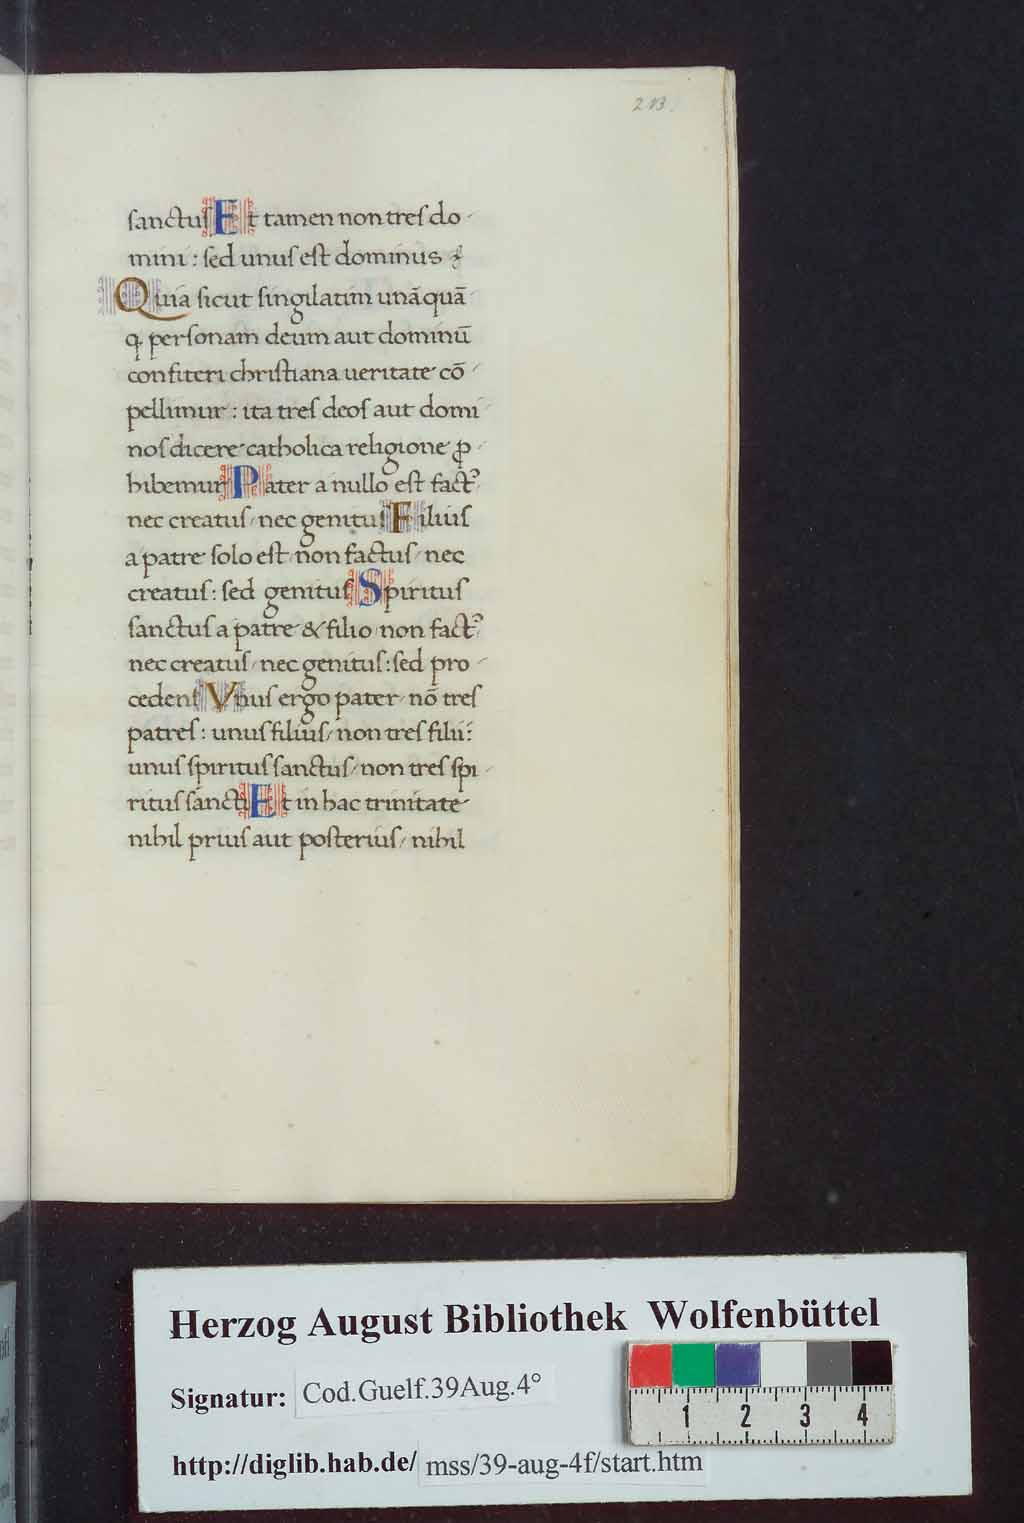 213
sanctus Et tamen non tres do-
mini : sed unus est dominus
Quia sicut singilatim unā quā
q; personam deum aut dominū
confiteri christiana ueritate cō-
pellimur : ita tres deos aut domi-
nos dicere catholica religione ꝓ-
hibemur Pater a nullo est fact᾽
nec creatus / nec genitus Filius
a patre solo est / non factus / nec
creatus : sed genitus Spiritus
sanctus a patre & filio / non fact᾽
nec creatus / nec genitus : sed pro-
cedens Vnus ergo pater / nō tres
patres : unus filius / non tres filii :
unus spiritus sanctus / non tres spi-
ritus sancti Et in hac trinitate
nihil prius aut posterius / nihil
Herzog August Bibliothek Wolfenbüttel
Signatur: Cod.Guelf.39Aug.4°
http://diglib.hab.de/ mss/39-aug-4f/start.htm
1 2 3 4